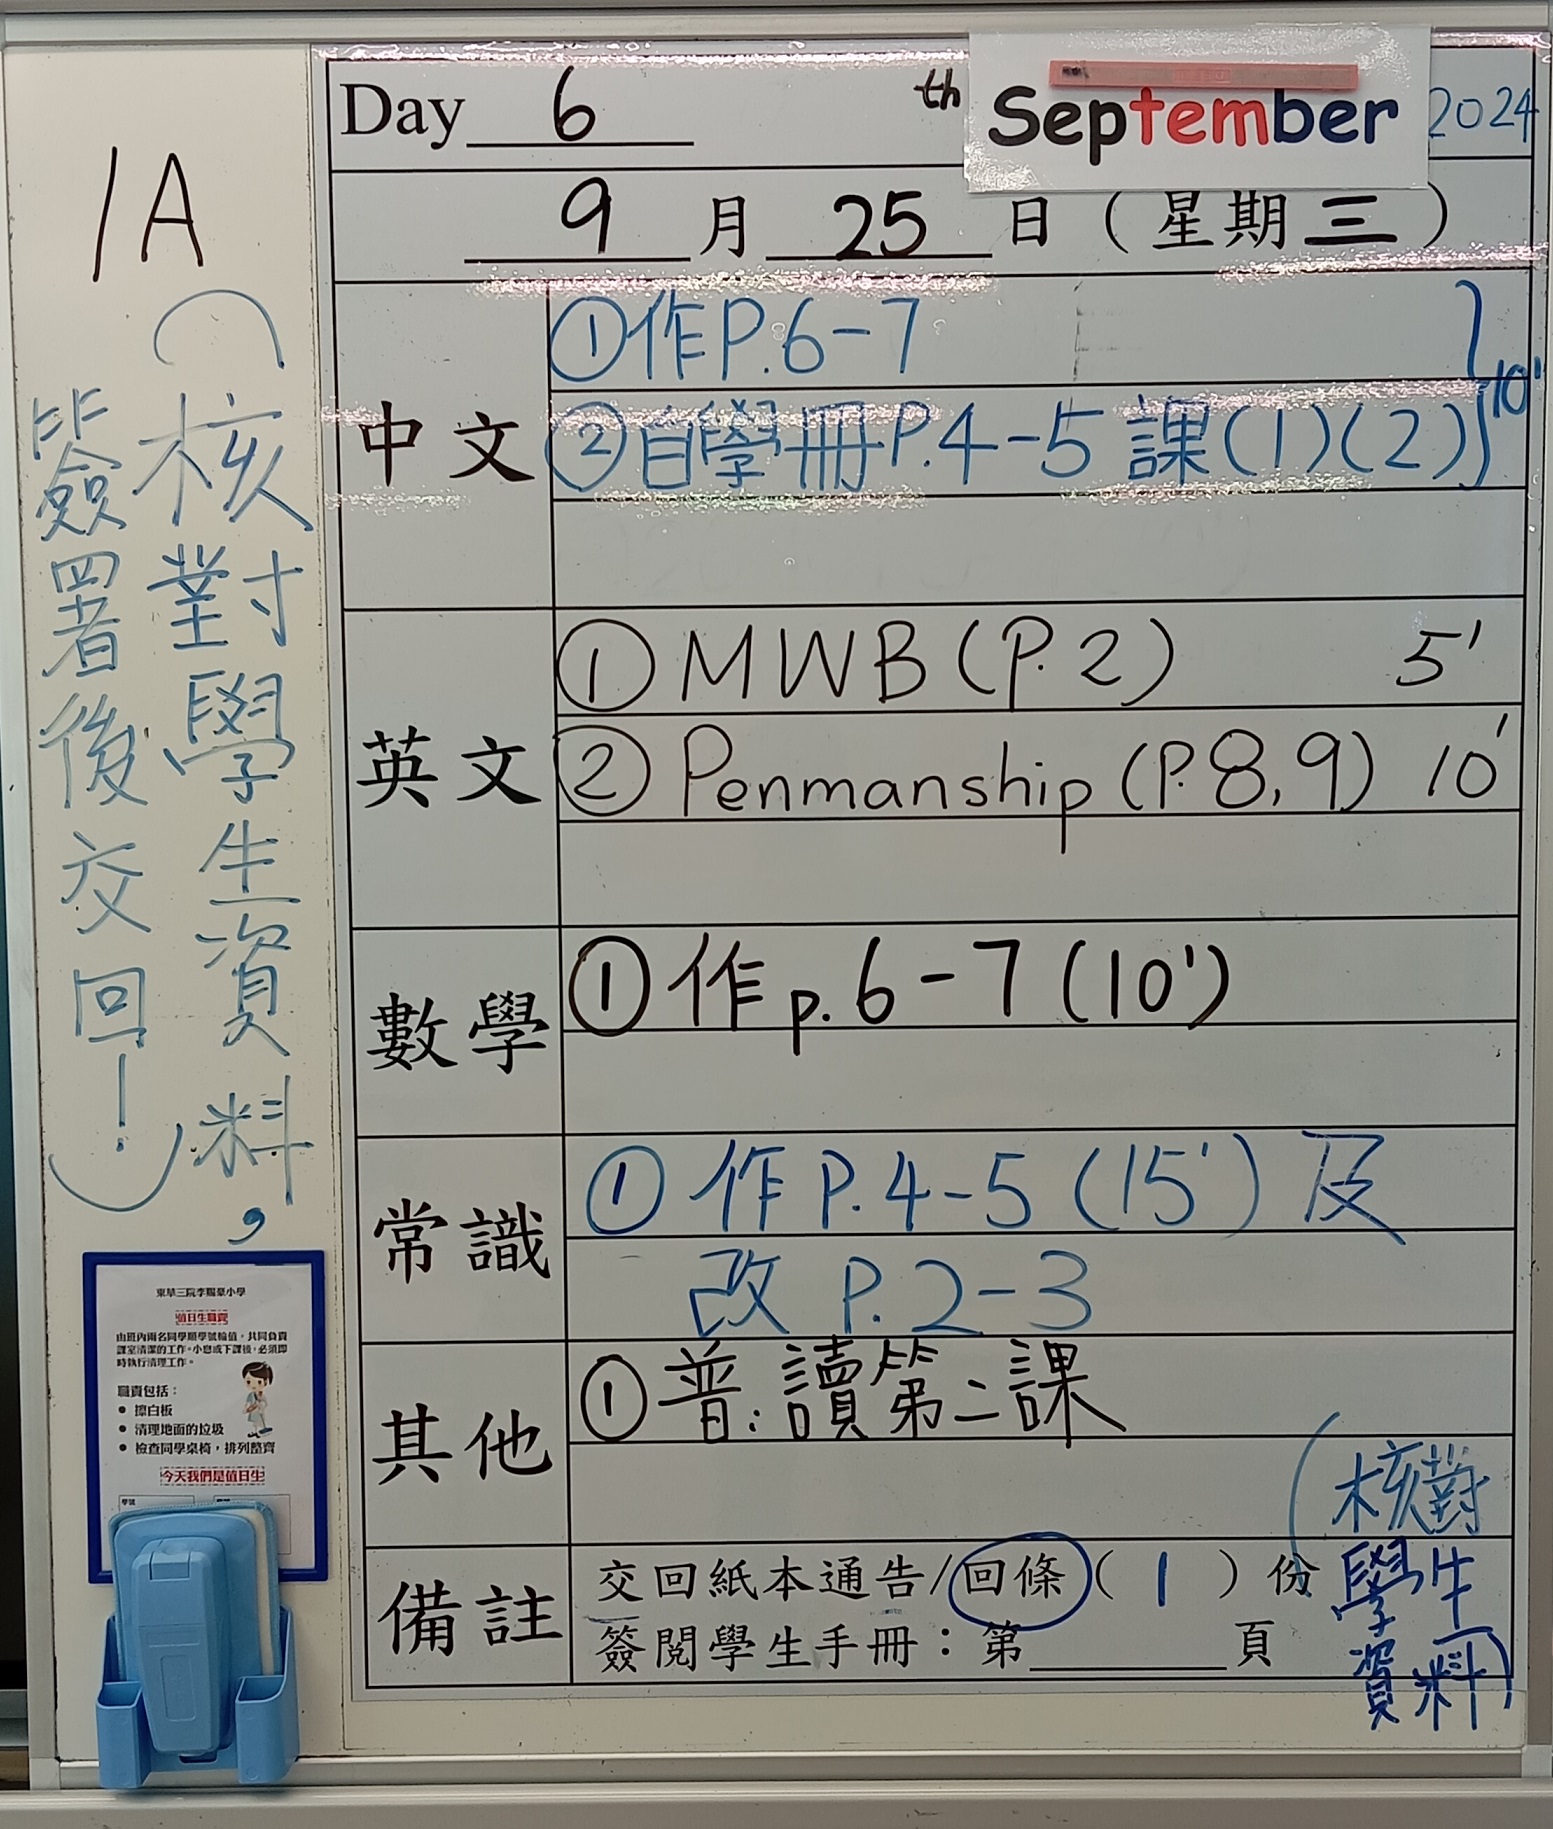 Day 6 th September 2024
9 月 25 日 (星期三)
1A
(核對學生資料,
簽署後交回!)
中文
①作P.6-7
②自學冊P.4-5 課(1)(2)
10'
英文
① MWB (P.2) 5'
② Penmanship (P.8,9) 10'
數學
① 作 p.6-7 (10')
常識
① 作 P.4-5 (15') 及
改 P.2-3
其他
① 普:讀第二課
備註
交回紙本通告/回條( 1 )份
簽閱學生手冊:第______頁
(核對
學生
資料)
東華三院李賜豪小學
值日生職責
由班內兩名同學順學號輪值,共同負責
課室清潔的工作。小息或下課後,必須即
時執行清理工作。
職責包括:
● 擦白板
● 清理地面的垃圾
● 檢查同學桌椅,排列整齊
今天我們是值日生
學號